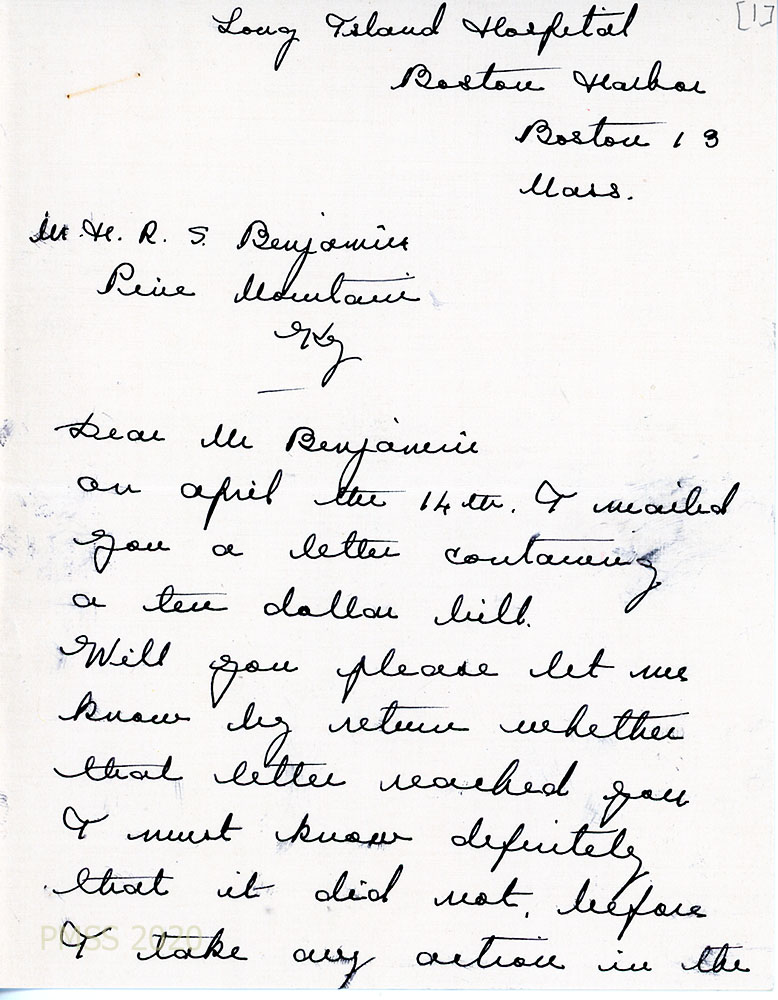 [1]
Long Island Hospital
Boston Harbor
Boston 13
Mass.
Mr. H. R. S. Benjamin
Pine Mountain
Ky
Dear Mr Benjamin
on april the 14th. I mailed
you a letter containing
a ten dollar bill.
Will you please let me
know by return whether
that letter reached you
I must know definitely
that it did not, before
I take any action in the
PMSS 2020